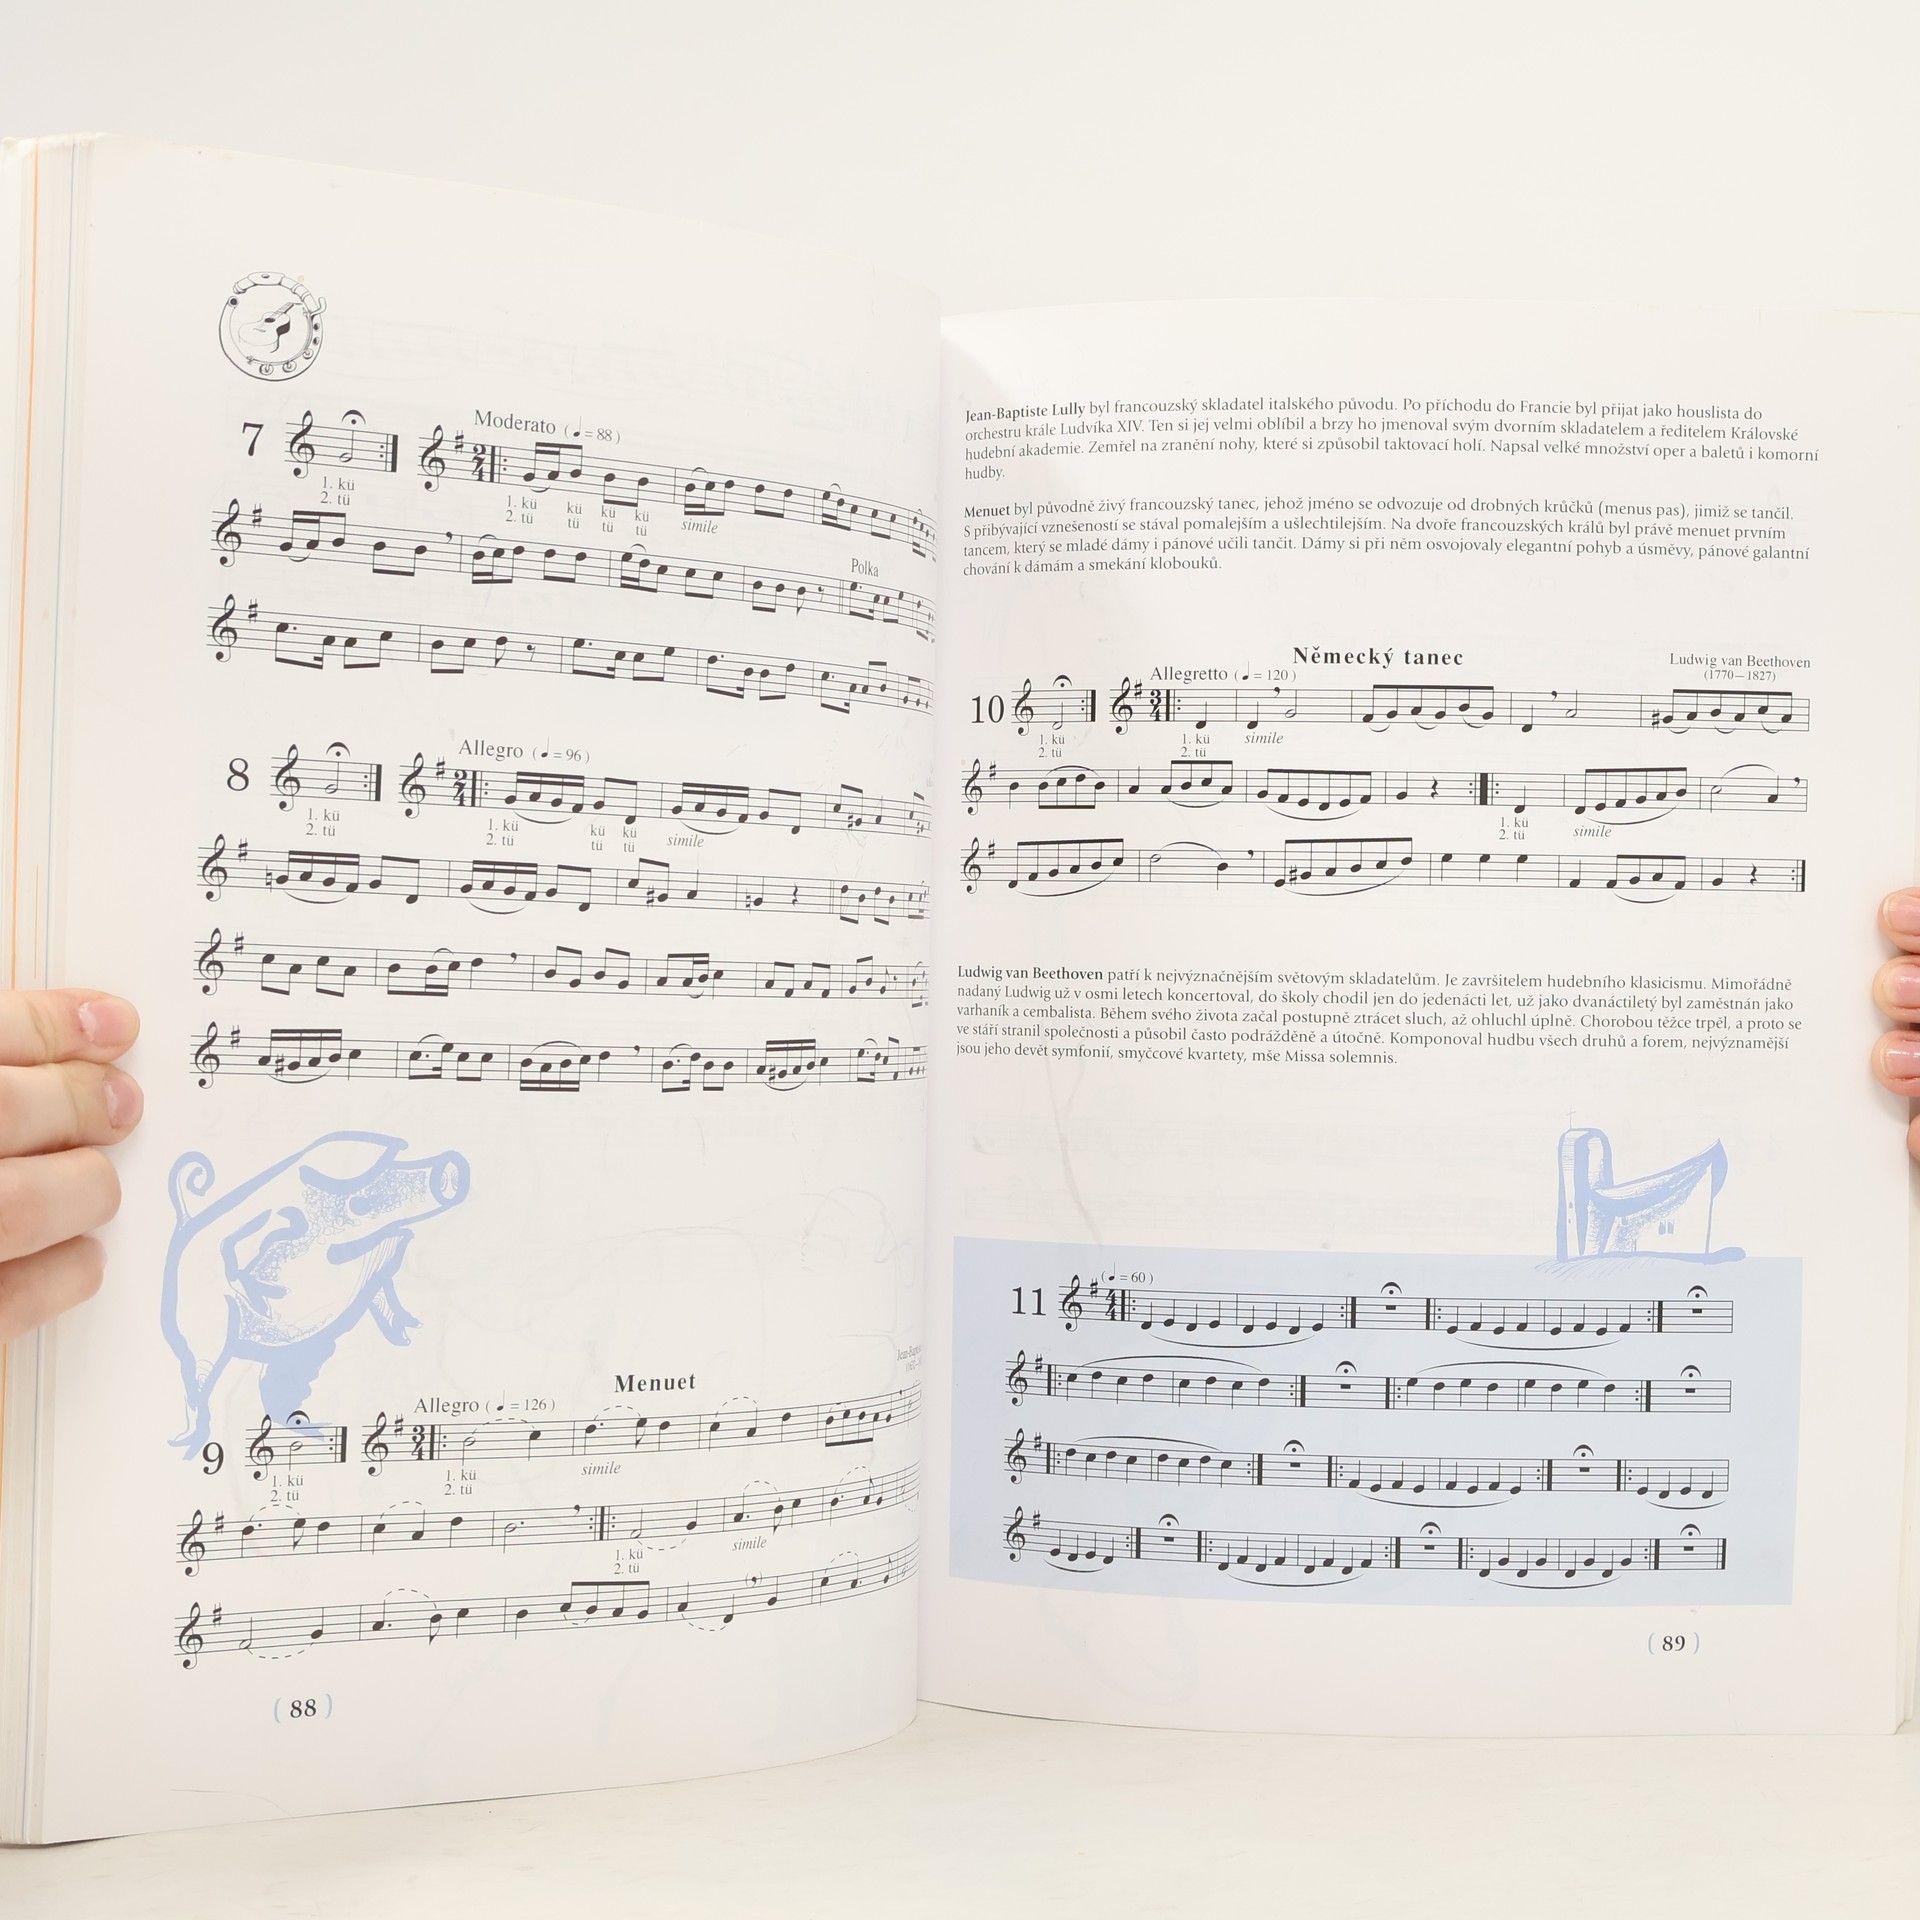 7
Moderato (♩= 88)
1. kü
2. tü
1. kü kü kü kü
2. tü tü tü tü
simile
Polka
8
Allegro (♩= 96)
1. kü
2. tü
1. kü kü kü
2. tü tü tü
simile
Menuet
9
Allegro (♩= 126)
1. kü
2. tü
1. kü
2. tü
simile
1. kü
2. tü
simile
( 88 )
Jean-Baptiste Lully byl francouzský skladatel italského původu. Po příchodu do Francie byl přijat jako houslista do
orchestru krále Ludvíka XIV. Ten si jej velmi oblíbil a brzy ho jmenoval svým dvorním skladatelem a ředitelem Královské
hudební akademie. Zemřel na zranění nohy, které si způsobil taktovací holí. Napsal velké množství oper a baletů i komorní
hudby.
Menuet byl původně živý francouzský tanec, jehož jméno se odvozuje od drobných krůčků (menus pas), jimiž se tančil.
S přibývající vznešeností se stával pomalejším a ušlechtilejším. Na dvoře francouzských králů byl právě menuet prvním
tancem, který se mladé dámy i pánové učili tančit. Dámy si při něm osvojovaly elegantní pohyb a úsměvy, pánové galantní
chování k dámám a smekání klobouků.
Německý tanec
Ludwig van Beethoven
(1770—1827)
10
Allegretto (♩= 120)
1. kü
2. tü
1. kü
2. tü
simile
1. kü
2. tü
simile
Ludwig van Beethoven patří k nejvýznačnějším světovým skladatelům. Je završitelem hudebního klasicismu. Mimořádně
nadaný Ludwig už v osmi letech koncertoval, do školy chodil jen do jedenácti let, už jako dvanáctiletý byl zaměstnán jako
varhaník a cembalista. Během svého života začal postupně ztrácet sluch, až ohluchl úplně. Chorobou těžce trpěl, a proto se
ve stáří stranil společnosti a působil často podrážděně a útočně. Komponoval hudbu všech druhů a forem, nejvýznamější
jsou jeho devět symfonií, smyčcové kvartety, mše Missa solemnis.
11
(♩= 60)
( 89 )